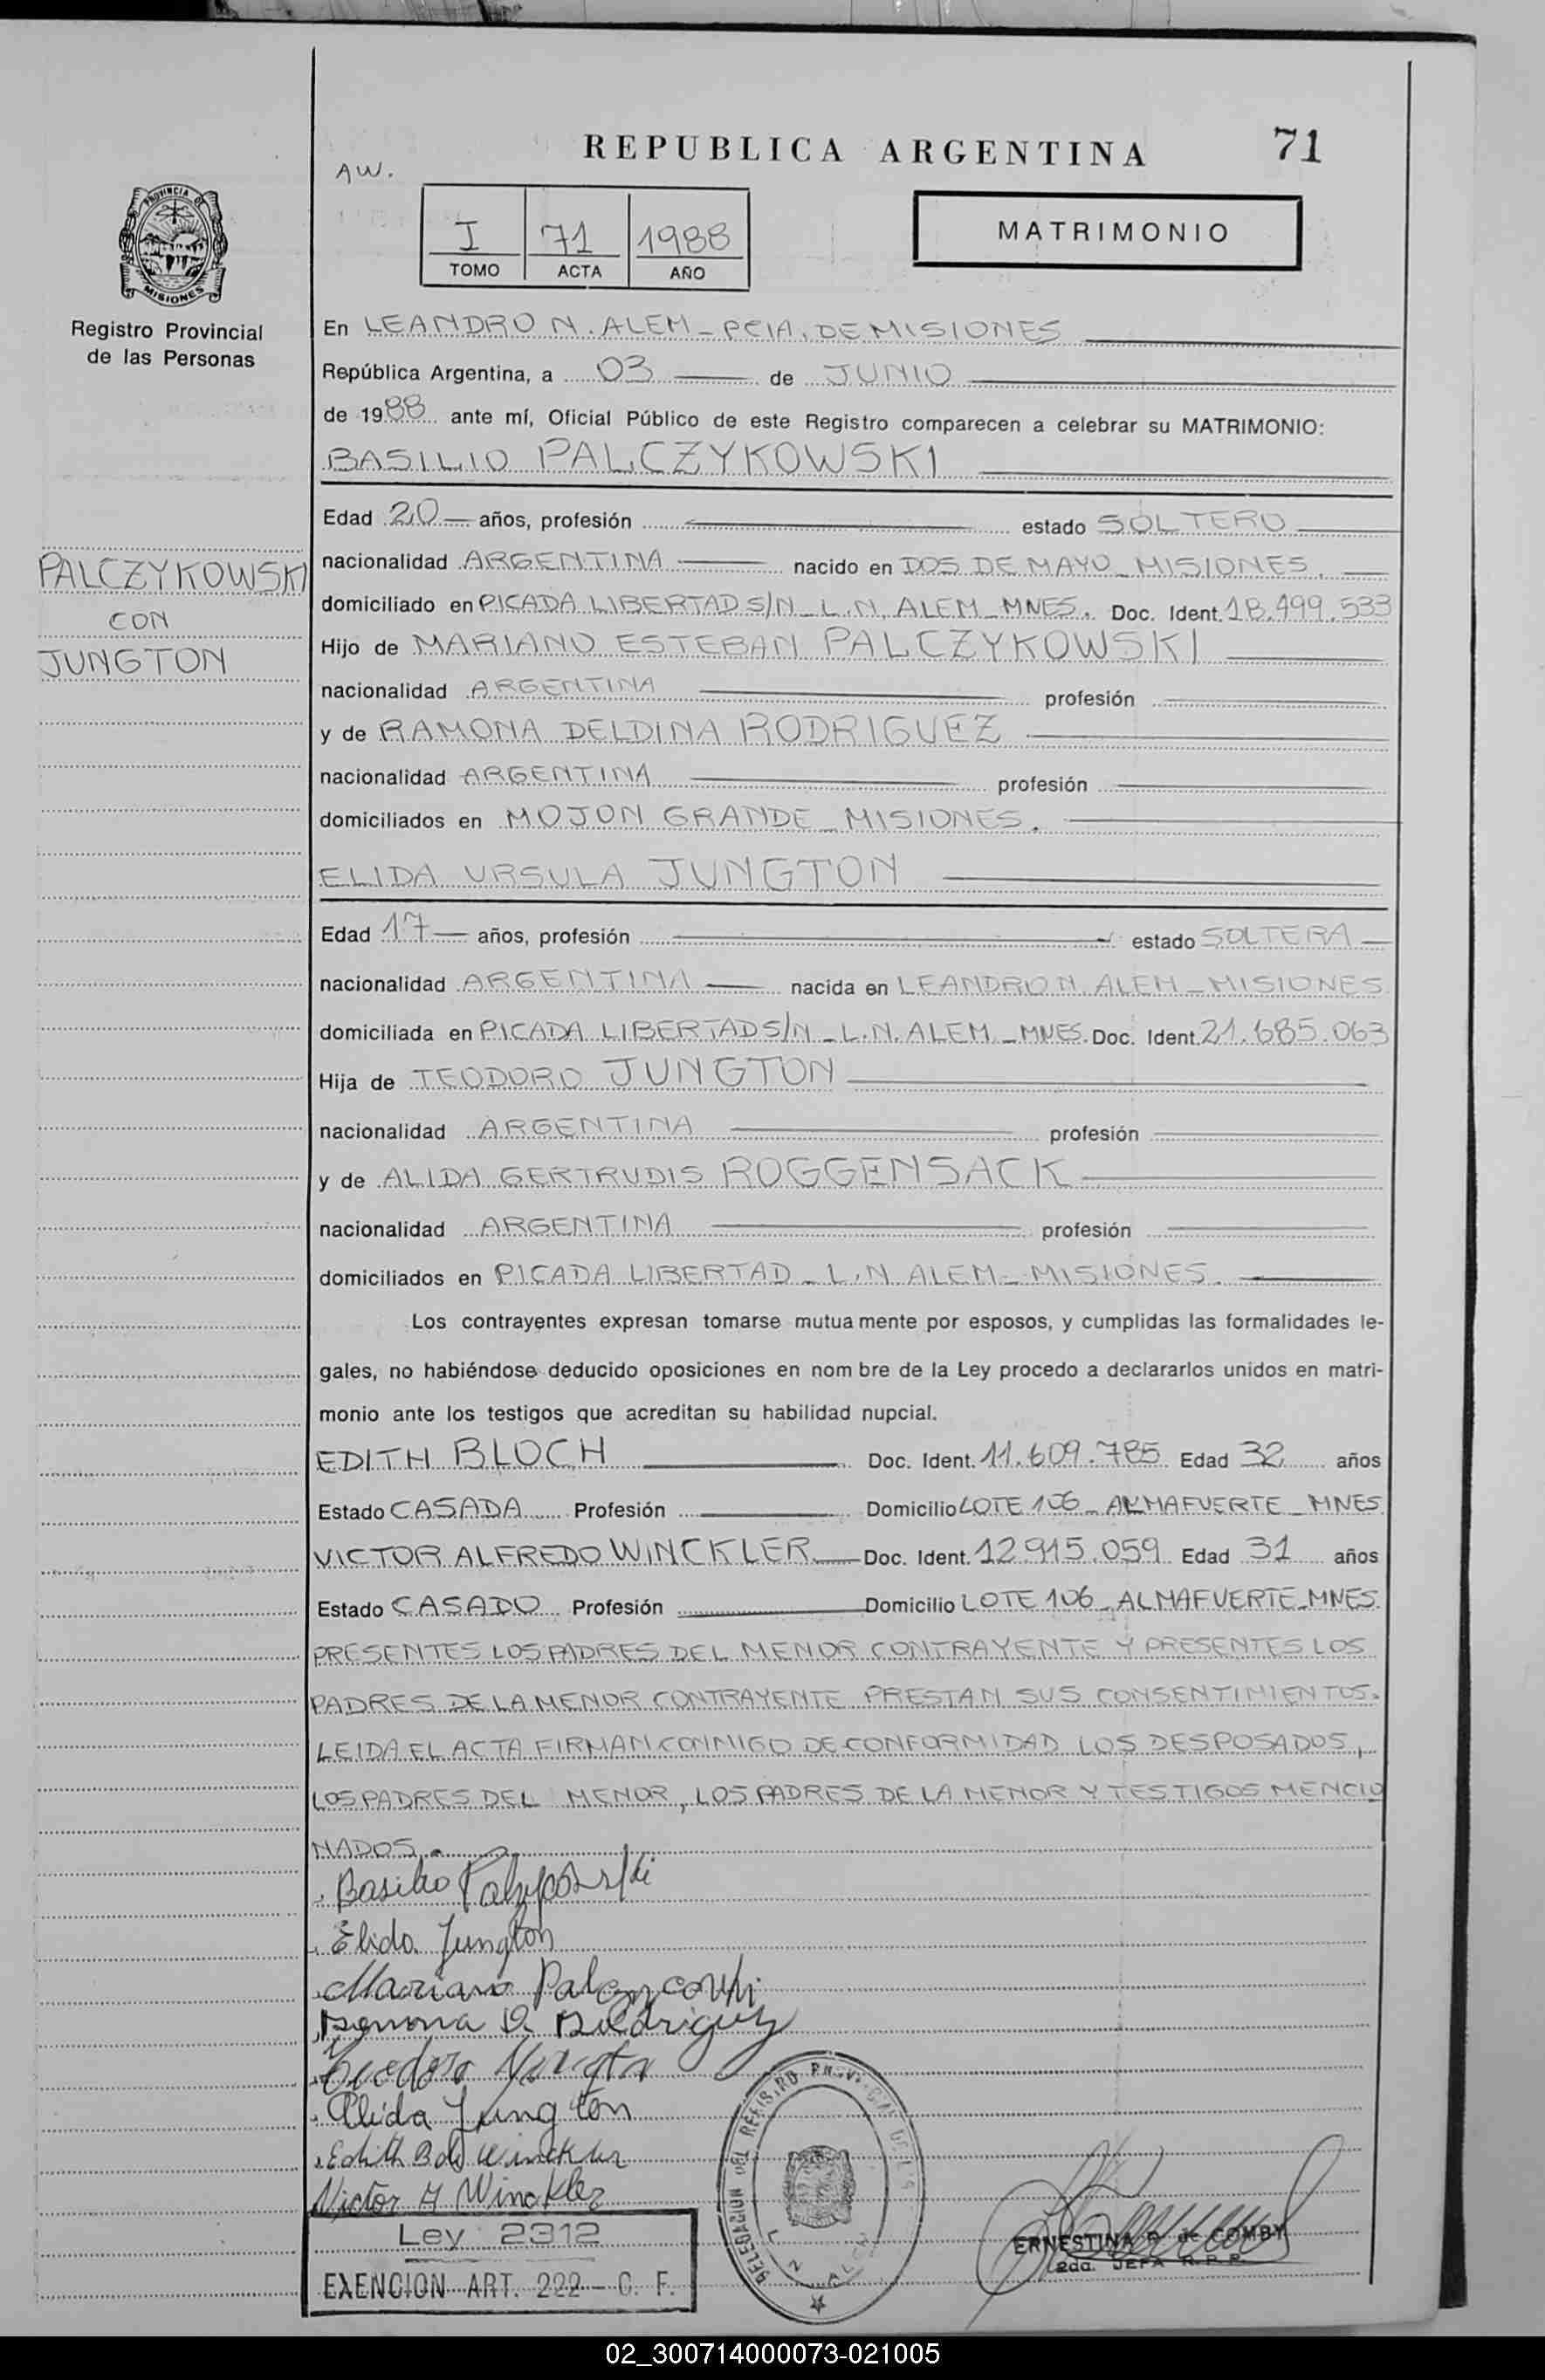 REPUBLICA ARGENTINA
71
AW.
I 71 1988
TOMO ACTA AÑO
MATRIMONIO
PROVINCIA DE
MISIONES
Registro Provincial
de las Personas
En LEANDRO N. ALEM - PCIA. DE MISIONES
República Argentina, a 03 de JUNIO
de 1988 ante mí, Oficial Público de este Registro comparecen a celebrar su MATRIMONIO:
BASILIO PALCZYKOWSKI
Edad 20 años, profesión estado SOLTERO
PALCZYKOWSKI
CON
JUNGTON
nacionalidad ARGENTINA nacido en DOS DE MAYO - MISIONES.
domiciliado en PICADA LIBERTAD S/N - L.N. ALEM - MNES. Doc. Ident. 18.499.533
Hijo de MARIANO ESTEBAN PALCZYKOWSKI
nacionalidad ARGENTINA profesión
y de RAMONA DELDINA RODRIGUEZ
nacionalidad ARGENTINA profesión
domiciliados en MOJON GRANDE - MISIONES.
ELIDA URSULA JUNGTON
Edad 17 años, profesión estado SOLTERA
nacionalidad ARGENTINA nacida en LEANDRO N. ALEM - MISIONES
domiciliada en PICADA LIBERTAD S/N - L.N. ALEM - MNES. Doc. Ident. 21.685.063
Hija de TEODORO JUNGTON
nacionalidad ARGENTINA profesión
y de ALIDA GERTRUDIS ROGGENSACK
nacionalidad ARGENTINA profesión
domiciliados en PICADA LIBERTAD - L.N. ALEM - MISIONES.
Los contrayentes expresan tomarse mutuamente por esposos, y cumplidas las formalidades le-
gales, no habiéndose deducido oposiciones en nombre de la Ley procedo a declararlos unidos en matri-
monio ante los testigos que acreditan su habilidad nupcial.
EDITH BLOCH Doc. Ident. 11.609.785 Edad 32 años
Estado CASADA Profesión Domicilio LOTE 106 - ALMAFUERTE - MNES
VICTOR ALFREDO WINCKLER Doc. Ident. 12.915.059 Edad 31 años
Estado CASADO Profesión Domicilio LOTE 106 - ALMAFUERTE - MNES.
PRESENTES LOS PADRES DEL MENOR CONTRAYENTE Y PRESENTES LOS
PADRES DE LA MENOR CONTRAYENTE PRESTAN SUS CONSENTIMIENTOS.
LEIDA EL ACTA FIRMAN CONMIGO DE CONFORMIDAD LOS DESPOSADOS,
LOS PADRES DEL MENOR, LOS PADRES DE LA MENOR Y TESTIGOS MENCIO
NADOS.
Basilio
Elida Jungton
Mariano
Ramona D. Rodriguez
Teodoro Jungton
Alida Jungton
Edith B de Winckler
Victor A Winckler
DELEGACION DEL REGISTRO
L N ALEM
Ley 2312
EXENCION ART. 222 - C. F.
ERNESTINA R. de COMBY
2da. JEFA R.P.P.
02_300714000073-021005